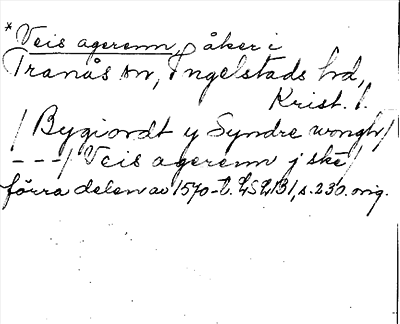 * Veis agerenn, åker i
Tranås sn, Ingelstads hd,
Krist. l.
/ Bygiordt y Syndre wongh/
---/ Veis agerenn j skē/
förra delen av 1570-t. LSLB1, s. 230. orig.